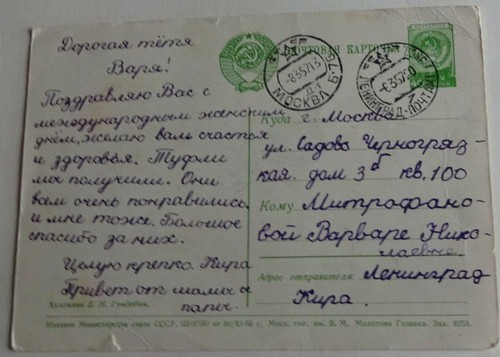 Дорогая тётя
Варя!
Поздравляю Вас с
международным женским
днём, желаю вам счастья
и здоровья. Туфли
мы получили. Они
всем очень понравились
и мне тоже. Большое
спасибо за них.
Целую крепко. Кира
Привет от мамы и
папы.
Художник
Издание Министерства связи СССР.
ПОЧТОВАЯ КАРТОЧКА
МОСКВА Б-76
ЛЕНИНГРАД-ПОЧТАМТ
Куда г. Москва
ул. Садово Черногряз-
кая. дом 3б кв. 100
Кому Митрофано-
вой Варваре Нико-
лаевне.
Адрес отправителя: Ленинград
Кира.